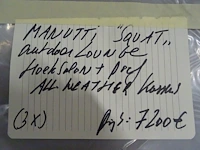 MANUTTI, "SQUAT"
outdoor LOUNGE
Hocksalon + Poef
ALL WEATHER Kussens
(3x) Prijs: 7200€